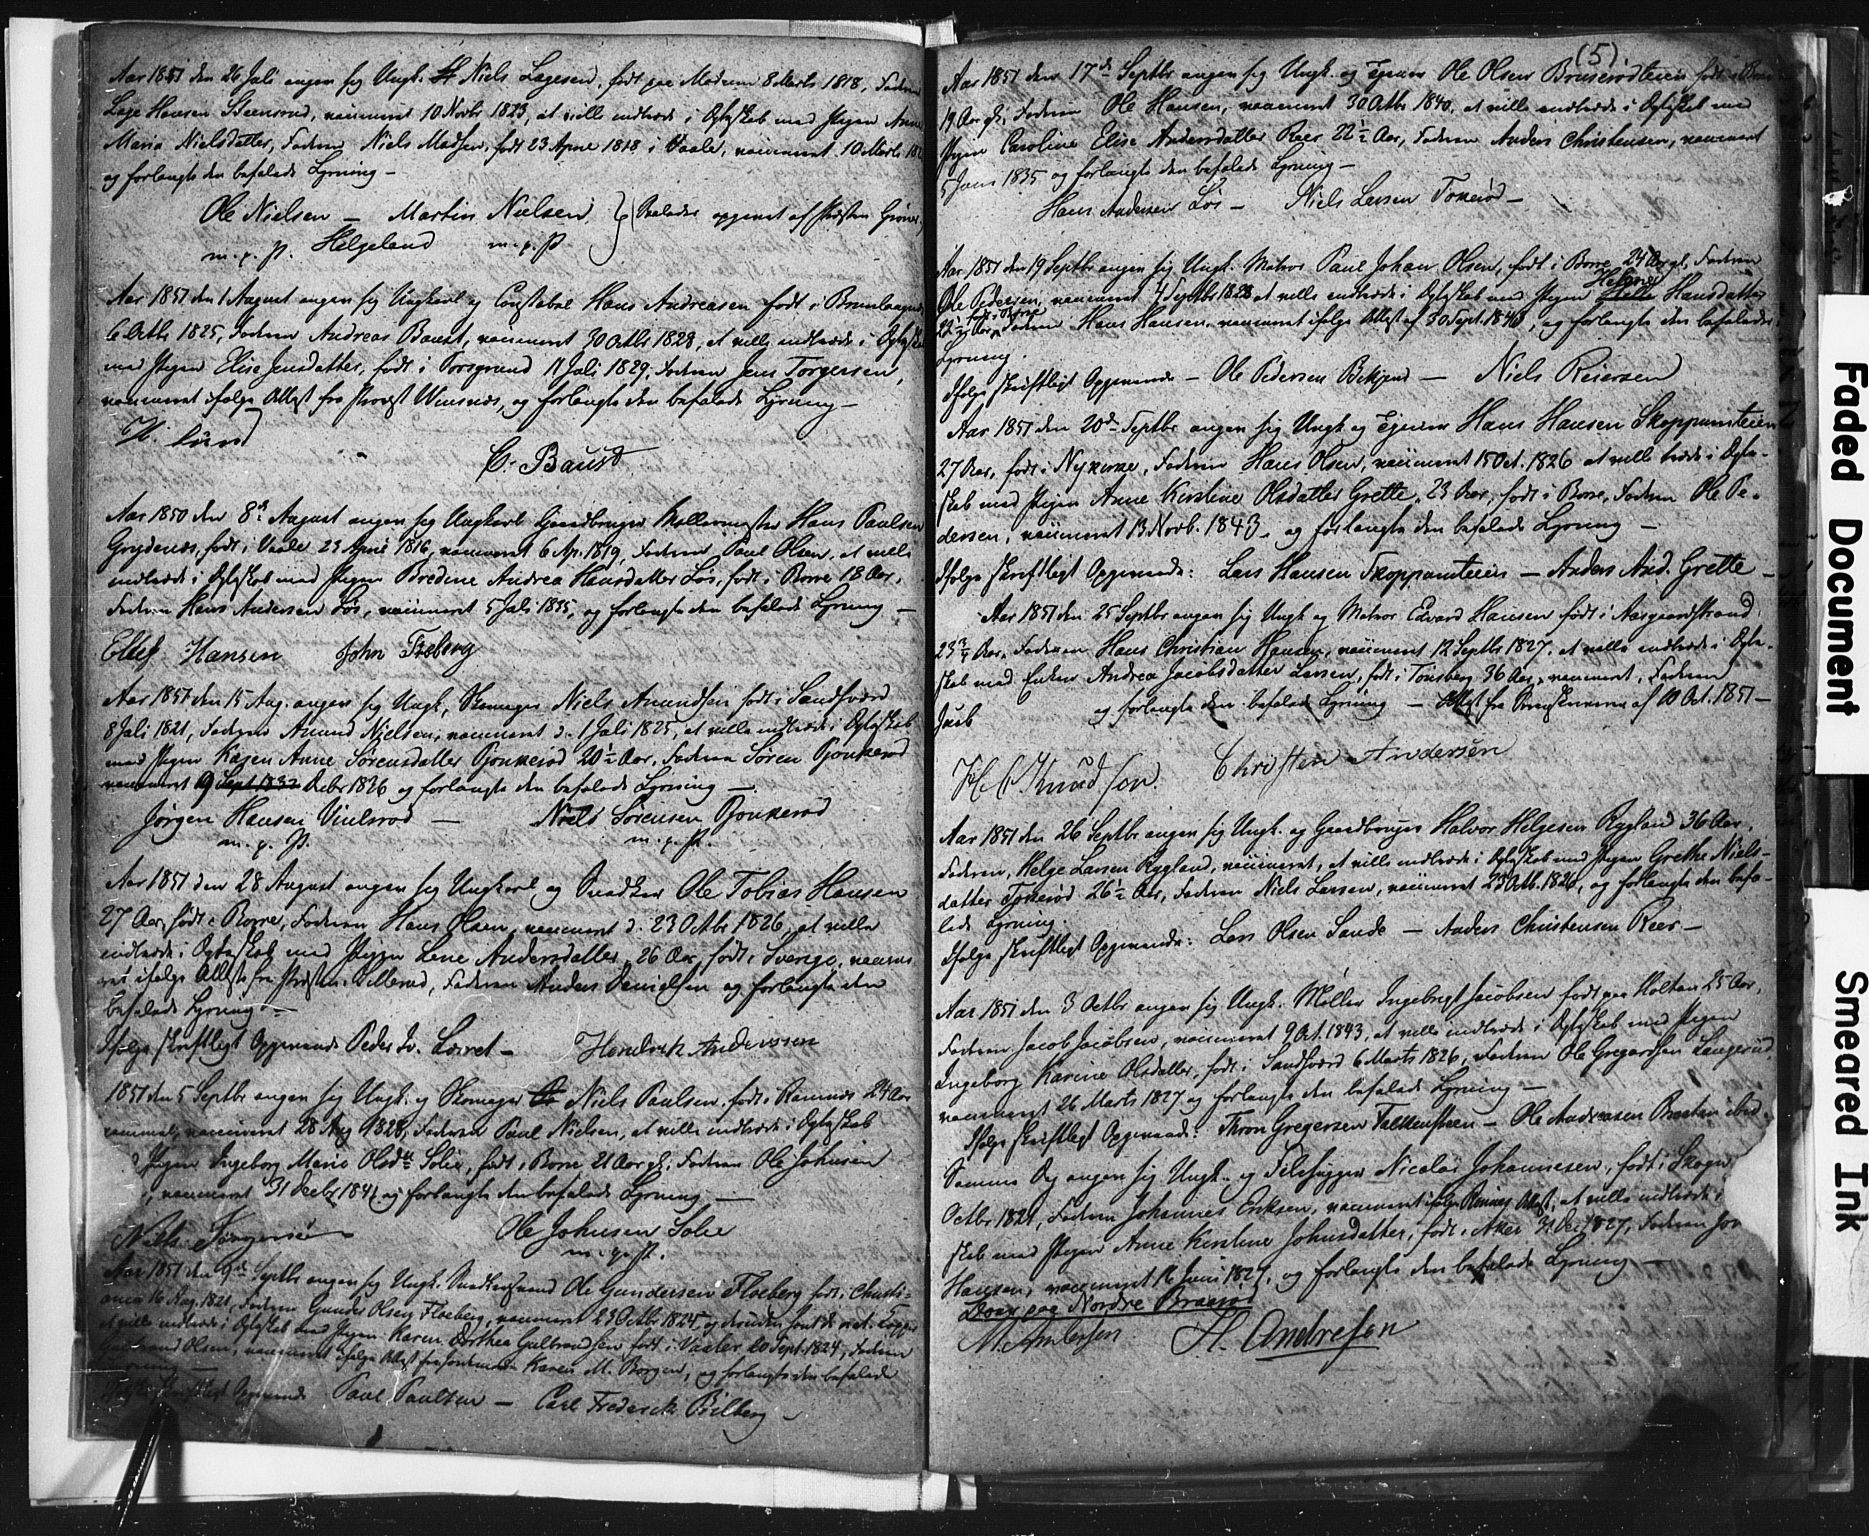 Aar 1851 den 26 Juli angav sig Ungk. Niels Lagesen, født paa Modum 8 Marts 1818, Faderen
Lage Hansen Steensrud, vaccineret 10 Novbr 1823, at ville indtræde i Ægteskab med Pigen Anne
Maria Nielsdatter, Faderen Niels Madsen, født 23 April 1818 i Vaale, vaccineret 10 Marts
og forlangte den befalede Lysning –
Ole Nielsen – Martin Nielsen } Skaleder opgivet af Præsten
m. p. P. Helgeland m. p. P
Aar 1851 den 1 August angav sig Ungkarl og Constabel Hans Andreasen født i Brunlaugnæs
6 Octb 1825, Faderen Andreas Baust, vaccineret 30 Octb 1828, at ville indtræde i Ægteskab
med Pigen Elise Jensdatter, født i Porsgrund 11 Juli 1829, Faderen Jens Torgersen,
vaccineret ifølge Attest fra Provst Winsnes, og forlangte den befalede Lysning –
H. Lund
C. Baust
Aar 1850 den 8de August angav sig Ungkarl Gaardbruger Møllermester Hans Paulsen
Grydenæs, født i Vaale 23 April 1816, vaccineret 6 Ap. 1819, Faderen Paul Olsen, at ville
indtræde i Ægteskab med Pigen Bredine Andrea Hansdatter Løs, født i Borre 18 Aar,
Faderen Hans Andersen Løs, vaccineret 5 Juli 1835, og forlangte den befalede Lysning –
Ellef Hansen John Freberg
Aar 1851 den 15 Aug. angav sig Ungk. Skomager Niels Amundsen født i Sandsværd
8 Juli 1821, Faderen Amund Nielsen, vaccineret d. 1 Juli 1825, at ville indtræde i Ægteskab
med Pigen Karen Anne Sørensdatter Bjonnerød 20½ Aar, Faderen Søren Bjonnerød
vaccineret 9 Sept 1832 Decbr 1836 og forlangte den befalede Lysning –
Jørgen Hansen Vinlsrød – Niels Sørensen Bjonnerød
m. p. P. m. p. P.
Aar 1851 den 28 August angav sig Ungkarl og Snedker Ole Tobias Hansen
27 Aar, født i Borre, Faderen Hans Olsen, vaccineret d. 23 Octbr 1826, at ville
indtræde i Ægteskab med Pigen Lene Andersdatter, 26 Aar, født i Sverige, vaccine
ret ifølge Attest fra Præsten i Hillerud, Faderen Anders Danielsen og forlangte den
befalede Lysning –
Ifølge skriftligt Opgivende Peder Lorret – Hendrik Anderssen
1851 den 5 Septbr angav sig Ungk. og Skomager Niels Paulsen, født i Ramnæs 24 Aar
gammel, vaccineret 28 Aug 1828, Faderen Paul Nielsen, at ville indtræde i Ægteskab
Pigen Ingeborg Marie Olsdtr Solie, født i Borre 21 Aar gl. Faderen Ole Johnsen
, vaccineret 31 Decbr 1841 og forlangte den befalede Lysning –
Niels Jørgensen Ole Johnsen Solie
m. p. P.
Aar 1851 den 9de Septbr angav sig Ungk. Snedkersvend Ole Gundersen Floeberg født i Christi-
ania 16 Aug. 1821, Faderen Gunder Olsen Floeberg, vaccineret 23 Octbr 1824,
at ville indtræde i Ægteskab med Pigen Karen Dorthea Gulbrandsen født i Vaaler 20 Sept. 1824, Faderen
Gulbrand Olsen, vaccineret ifølge Attest fra Jordmoder Karen M. Borgen, og forlangte den befalede
Lysning –
Ifølge skriftligt Opgivende Paul Paulsen – Carl Frederik Pihlberg –
(5).
Aar 1851 den 17de Septbr angav sig Ungk. og Eier Ole Olsen Bruserødteien født i Borre
19 Aar gl., Faderen Ole Hansen, vaccineret 30 Octbr 1840, at ville indtræde i Ægteskab med
Pigen Caroline Elise Andersdatter Reer 22½ Aar, Faderen Anders Christensen, vaccineret
5 Juni 1835 og forlangte den befalede Lysning –
Hans Andersen Løs – Niels Larsen Tokerød –
Aar 1851 den 19 Septbr angav sig Ungk. Matros Paul Johan Olsen, født i Borre 24 Aar gl. Faderen
Ole Pedersen, vaccineret 4 Septbr 1828 at ville indtræde i Ægteskab med Pigen Helene Hansdatter
22½ Aar født i Borre, Faderen Hans Hansen, vaccineret ifølge Attest af 30 Sept. 1843, og forlangte den befalede
Lysning.
Ifølge skriftligt Opgivende – Ole Pedersen Bekjend – Niels Reiersen
Aar 1851 den 20de Septbr angav sig Ungk og Eier Hans Hansen Skoppumteien
27 Aar, født i Nykirke, Faderen Hans Olsen, vaccineret 15 Oct. 1826 at ville træde i Ægte-
skab med Pigen Anne Kirstine Olsdatter Grette, 23 Aar, født i Borre, Faderen Ole Pe-
dersen, vaccineret 13 Novb. 1843, og forlangte den befalede Lysning –
Ifølge skriftligt Opgivende: Lars Hansen Skoppumteien – Anders And. Grette –
Aar 1851 den 25 Septbr angav sig Ungk og Matros Edvard Hansen født i Aasgaardstrand
23¾ Aar, Faderen Hans Christian Hansen, vaccineret 12 Septb 1827, at ville indtræde i Ægte-
skab med Enken Andrea Jacobsdatter Larsen, født i Tønsberg 36 Aar, vaccineret, Faderen
Jacob og forlangte den befalede Lysning – Attest fra af 10 Oct. 1851 –
H. C. Knudsen. Christen Andersen
Aar 1851 den 26 Septbr angav sig Ungk. og Gaardbruger Halvor Helgesen Rygland 36 Aar,
Faderen, Helge Larsen Rygland, vaccineret, at ville indtræde i Ægteskab med Pigen Grethe Niels-
datter Tokerød 26½ Aar, Faderen Niels Larsen, vaccineret 23 Octb. 1826, og forlangte den befa-
lede Lysning.
Ifølge skriftligt Opgivende: Lars Olsen Sande – Anders Christensen Reer –
Aar 1851 den 3 Octbr angav sig Ungk. Møller Ingebregt Jacobsen født paa Holtan 25 Aar,
Faderen Jacob Jacobsen, vaccineret 9 Oct. 1843, at ville indtræde i Ægteskab med Pigen
Ingeborg Karine Olsdatter, født i Sandsværd 6 Marts 1826, Faderen Ole Gregersen Langerud,
vaccineret 26 Marts 1827 og forlangte den befalede Lysning –
Ifølge skriftligt Opgivende: Thron Gregersen Falkensteen – Ole Andreasen Braatan ibid.
Samme Dag angav sig Ungk. og Filehugger Nicolai Johannesen, født i Skoger
Octbr 1821, Faderen Johannes Eriksen, vaccineret ifølge Attest, at ville indtræde i
skab med Pigen Anne Kirstine Johnsdatter, født i Aker 31 Dec 1827, Faderen Jon
Hansen, vaccineret 16 Juni 1829, og forlangte den befalede Lysning –
Boer paa Nordre Braarød
M. Andersen H. Andresen
Faded Document
Smeared Ink